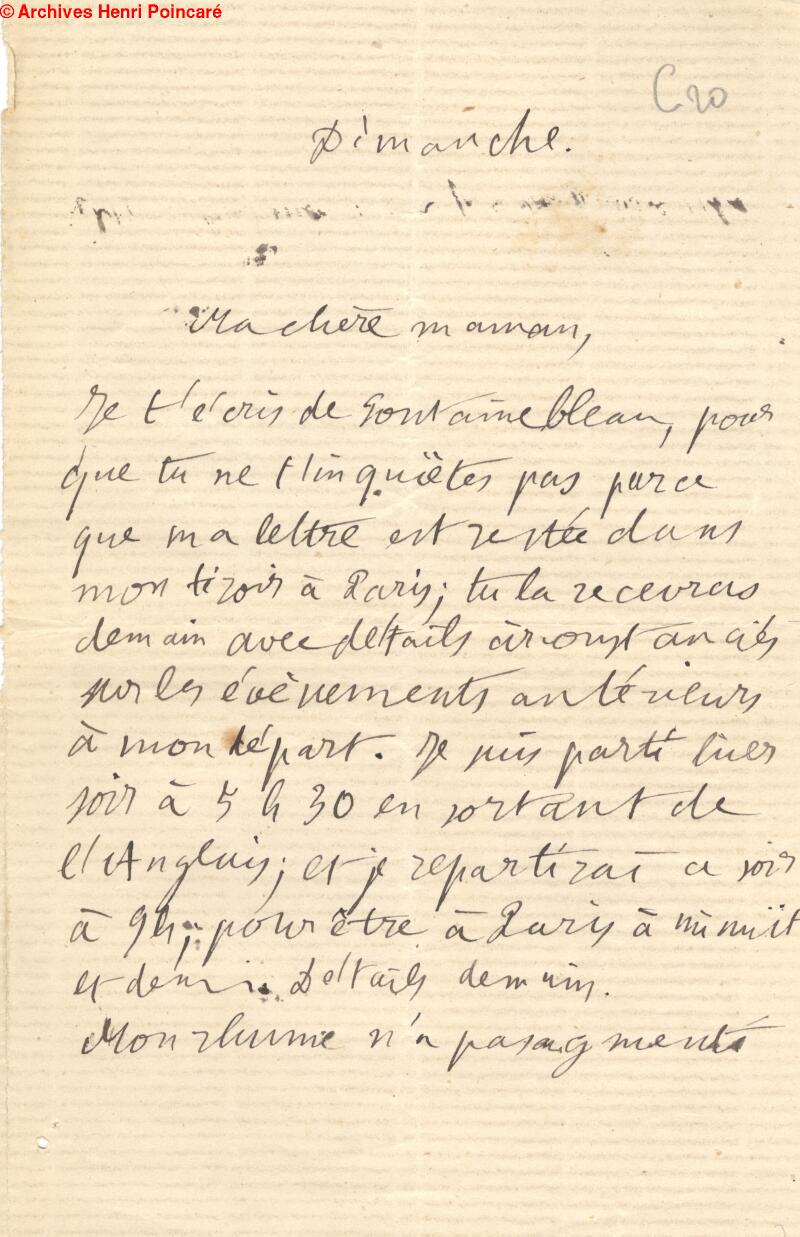 © Archives Henri Poincaré
C 20
Dimanche.
Ma chère maman,
Je t'écris de Fontainebleau, pour
que tu ne t'inquiètes pas parce
que ma lettre est restée dans
mon tiroir à Paris; tu la recevras
demain avec détails circonstanciés
sur les évènements antérieurs
à mon départ. Je suis parti hier
soir à 5 h 30 en sortant de
l'Anglais; et je repartirai ce soir
à 9h; pour être à Paris à minuit
et demi. Détails demain.
Mon rhume n'a pas agmenté